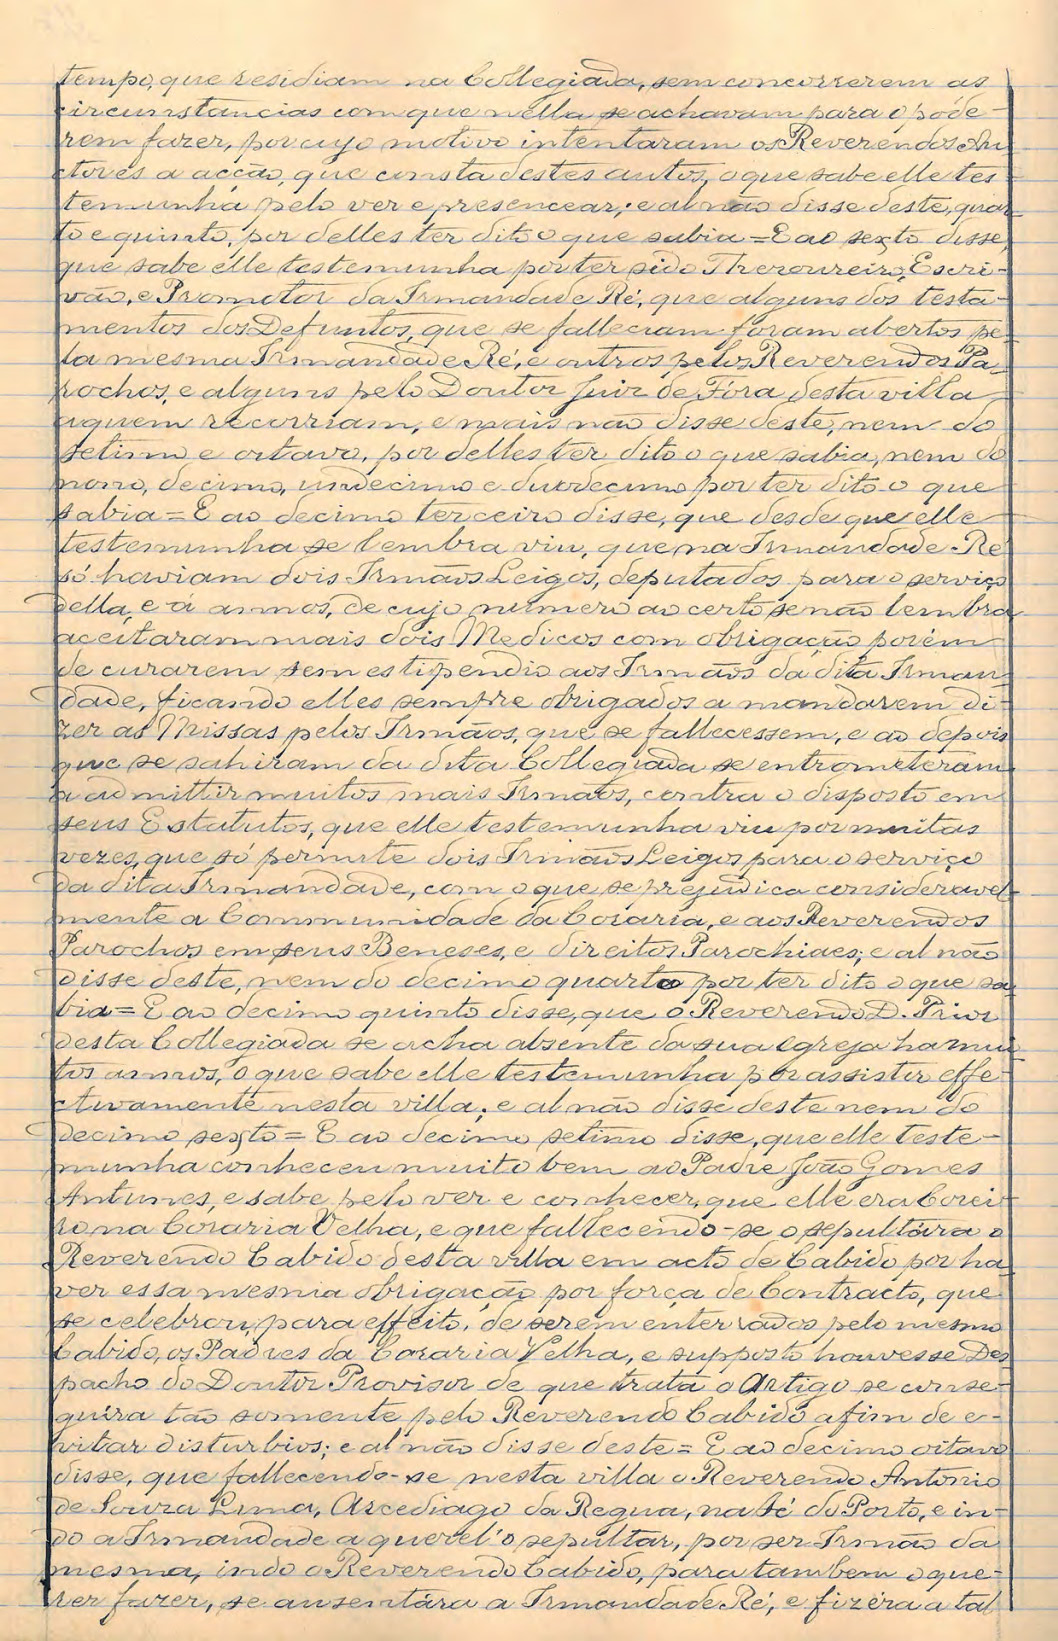 tempo, que residiam na Collegiada, sem concorrerem as
circumstancias com que nella se achavam para o póde-
rem fazer, por cujo motivo intentaram os Reverendos Au
ctores a acção, que consta destes autos, o que sabe elle tes
temunha pelo ver e presencear; e al não disse deste, quar-
to e quinto, por delles ter dito o que sabia = E ao sexto disse,
que sabe elle testemunha por ter sido Thezoureiro, Escri-
vão, e Promotor da Irmandade Ré, que alguns dos testa-
mentos dos Defuntos, que se falleciam foram abertos pe-
la mesma Irmandade Ré, e outros pelos Reverendos Pa-
rochos, e alguns pelo Doutor Juiz de Fóra desta villa
aquem recorriam, e mais não disse deste, nem do
setimo e oitavo, por delles ter dito o que sabia, nem do
nono, decimo, undecimo e duodecimo por ter dito o que
sabia = E ao decimo terceiro disse, que desde que elle
testemunha se lembra viu, que na Irmandade Ré
só haviam dois Irmãos Leigos, deputados para o serviço
della, e á annos, de cujo numero ao certo se não lembra
aceitaram mais dois Medicos com obrigação porém
de curarem sem estipendio aos Irmãos da dita Irman-
dade, ficando elles sempre obrigados a mandarem di-
zer as Missas pelos Irmãos, que se fallecessem, e ao depois
que se sahiram da dita Collegiada se entrometeram
a admittir muitos mais Irmãos, contra o disposto em
seus Estatutos, que elle testemunha viu por muitas
vezes, que só permite dois Irmãos Leigos para o serviço
da dita Irmandade, com o que se prejudica consideravel-
mente a Communidade da Coraria, e aos Reverendos
Parochos em seus Beneses, e direitos Parochiaes; e al não
disse deste, nem do decimo quarto por ter dito o que sa-
bia = E ao decimo quinto disse, que o Reverendo D. Prior
desta Collegiada se acha absente da sua egreja ha mui
tos annos, o que sabe elle testemunha por assistir effe-
ctivamente nesta villa; e al não disse deste nem do
decimo sexto = E ao decimo setimo disse, que elle teste-
munha conheceu muito bem ao Padre João Gomes
Antunes, e sabe pelo ver e conhecer, que elle era Corei
ro na Coraria Velha, e que fallecendo-se o sepultára o
Reverendo Cabido desta villa em acto de Cabido por ha-
ver essa mesma obrigação por força de Contracto, que
se celebrou, para effeito, de serem enterrados pelo mesmo
Cabido, os Padres da Coraria Velha, e supposto houvesse Des-
pacho do Doutor Provisor de que trata o Artigo se conse-
guira tão somente pelo Reverendo Cabido afim de e-
vitar disturbios; e al não disse deste = E ao decimo oitavo
disse, que fallecendo-se nesta villa o Reverendo Antonio
de Souza Lima, Arcediago da Regua, na Sé do Porto, e in-
do a Irmandade a querel'o sepultar, por ser Irmão da
mesma, indo o Reverendo Cabido, para tambem o que-
rer fazer, se ausentára a Irmandade Ré, e fizéra a tal